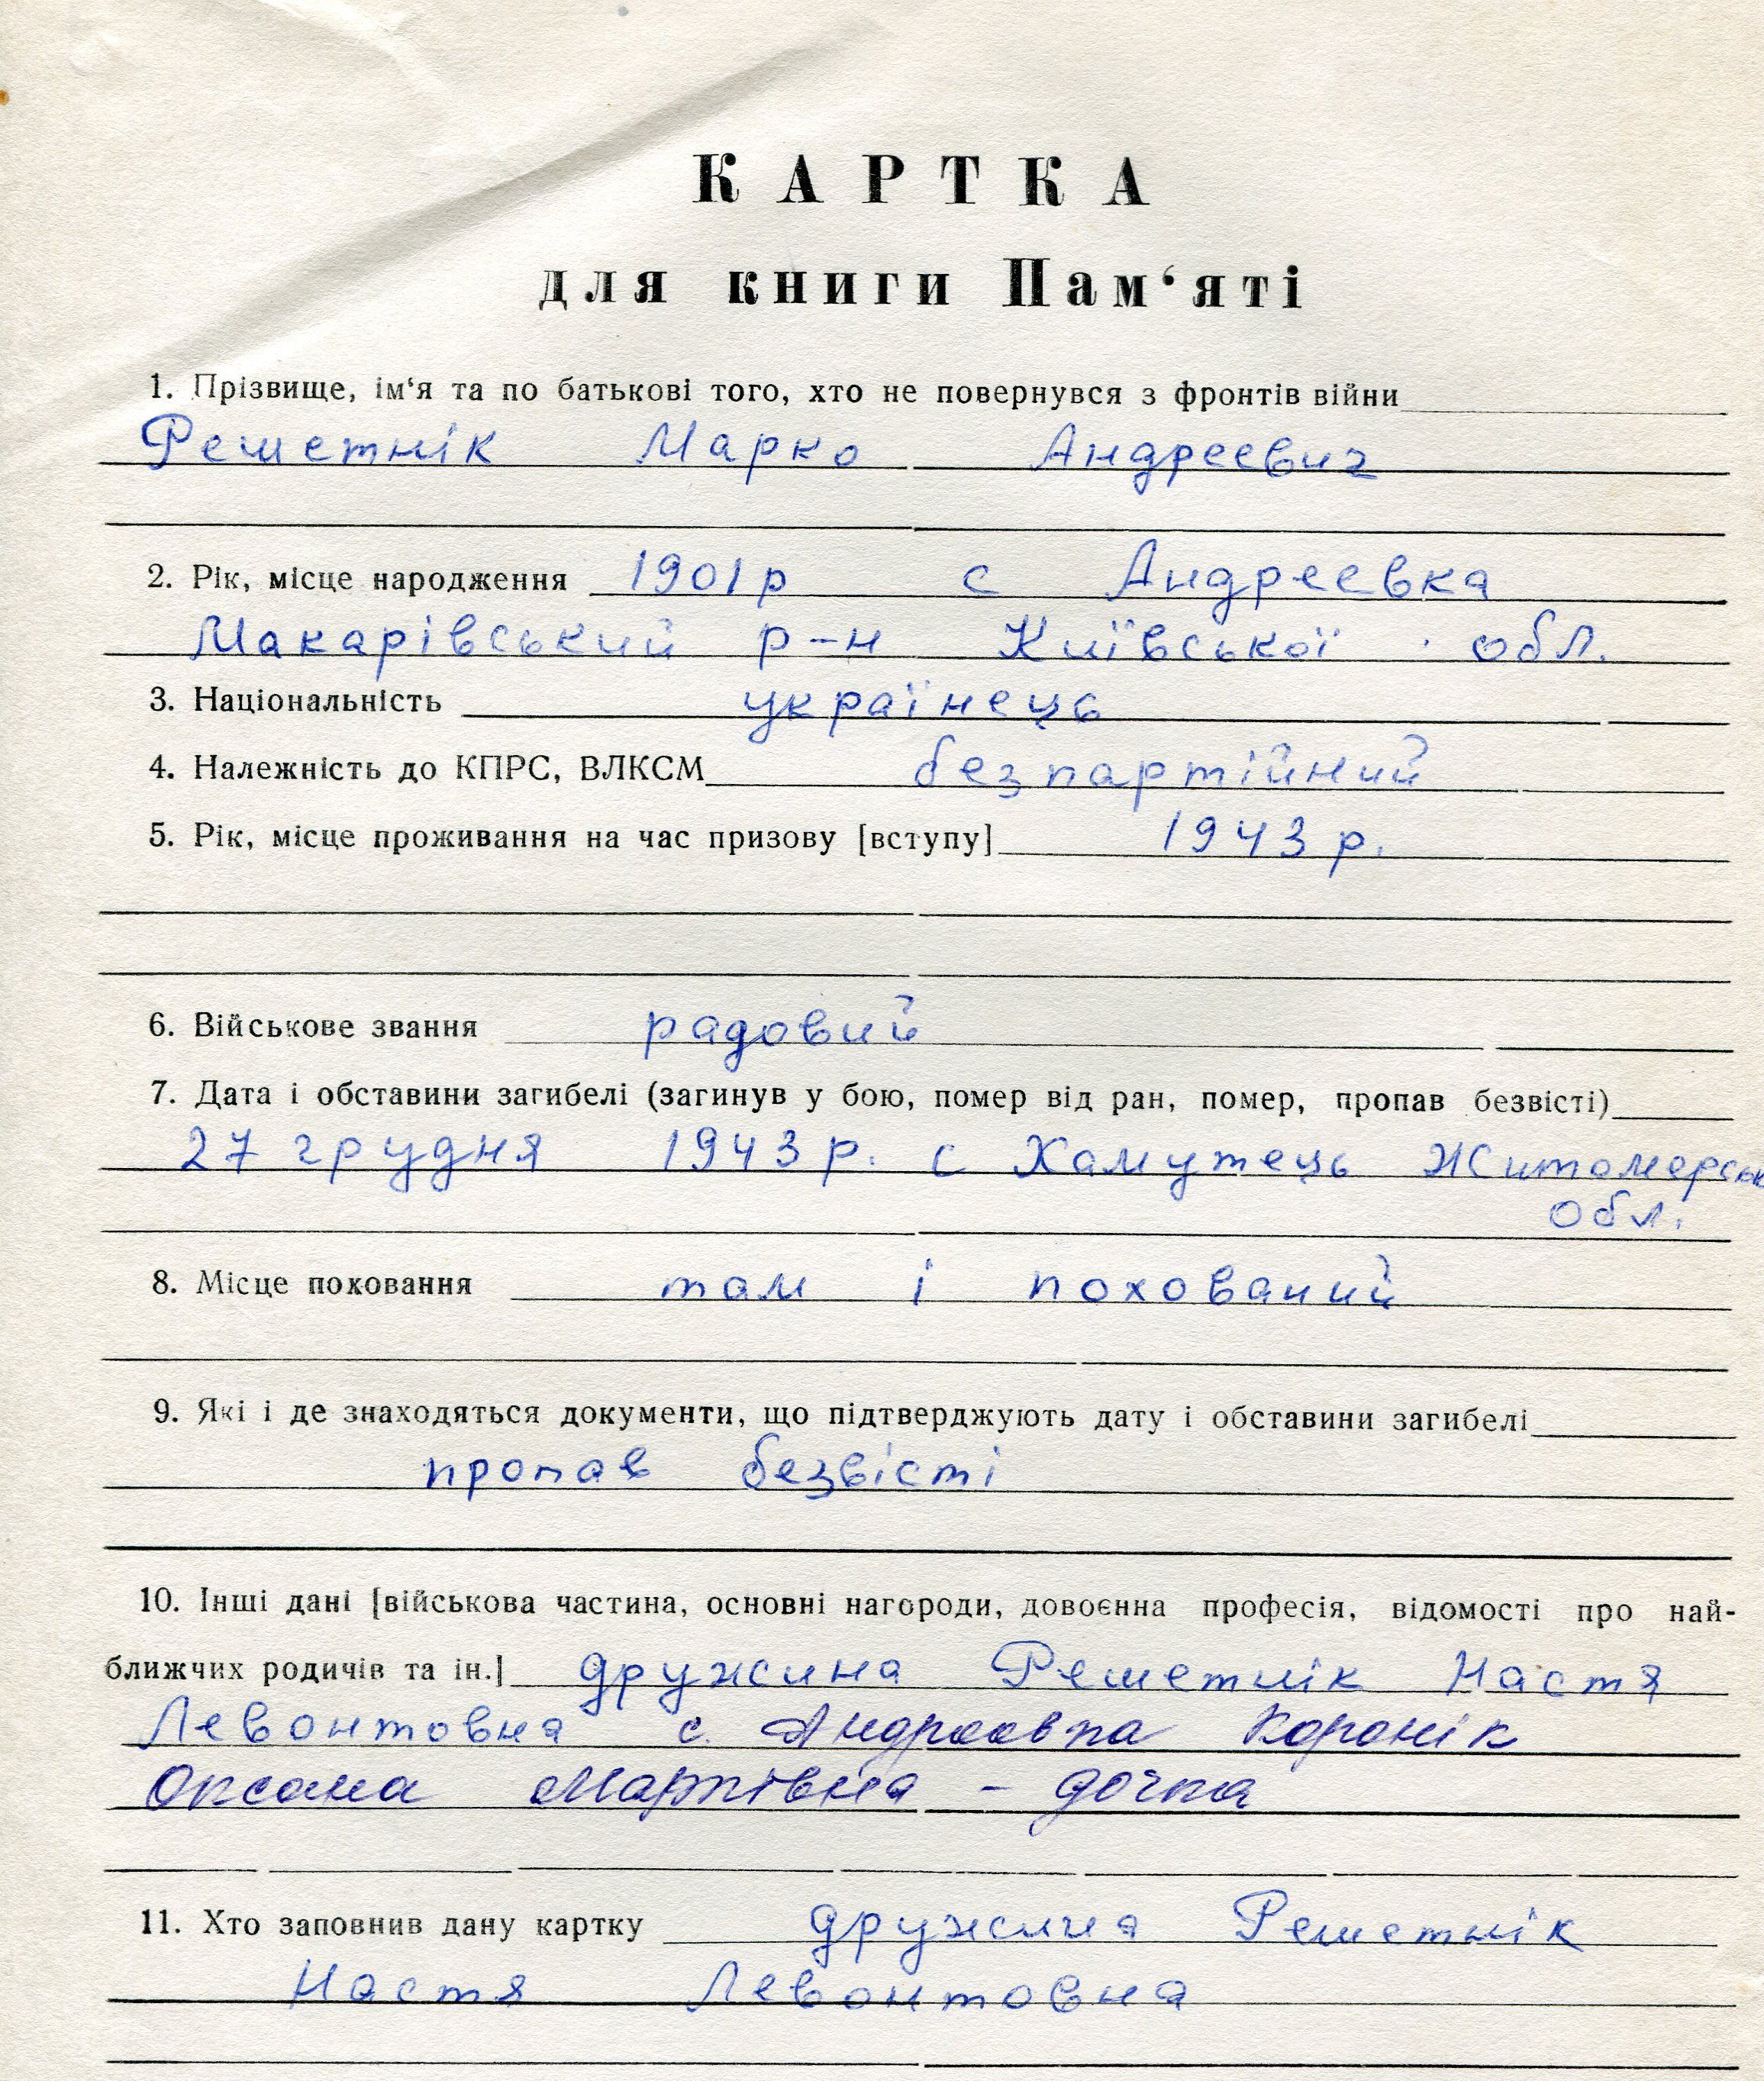 КАРТКА
для книги Пам‘яті
1. Прізвище, ім‘я та по батькові того, хто не повернувся з фронтів війни
Решетнік Марко Андреевич
2. Рік, місце народження 1901р с Андреевка
Макарівський р-н Київської обл.
3. Національність українець
4. Належність до КПРС, ВЛКСМ безпартійний
5. Рік, місце проживання на час призову [вступу] 1943 р.
6. Військове звання радовий
7. Дата і обставини загибелі (загинув у бою, помер від ран, помер, пропав безвісті)
27 грудня 1943 р. с Хамутець Житомерськ
обл.
8. Місце поховання там і похований
9. Які і де знаходяться документи, що підтверджують дату і обставини загибелі
пропав безвісті
10. Інші дані [військова частина, основні нагороди, довоєнна професія, відомості про най-
ближчих родичів та ін.] дружина Решетнік Настя
Левонтовна с. Андреевка Коронік
Оксана Марківна - дочка
11. Хто заповнив дану картку дружина Решетнік
Настя Левонтовна